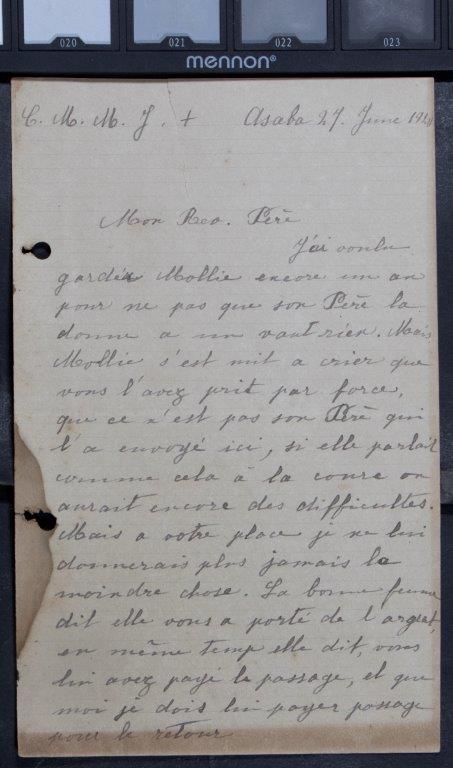 020 021 022 023
mennon®
C. M. M. J. + Asaba 27. June
Mon Rev. Père
J'ai voulu
garder Mollie encore un an
pour ne pas que son Père la
donne a un vaut rien. Mais
Mollie s'est mit a crier que
vous l'avez prit par force,
que ce n'est pas son Père qui
l'a envoyé ici, si elle parlait
comme cela à la coure on
aurait encore des difficultes.
Mais a votre place je ne lui
donnerais plus jamais la
moindre chose. La bonne femme
dit elle vous a porté de l'argent,
en même temp elle dit, vous
lui avez payé le passage, et que
moi je dois lui payer passage
pour le retour